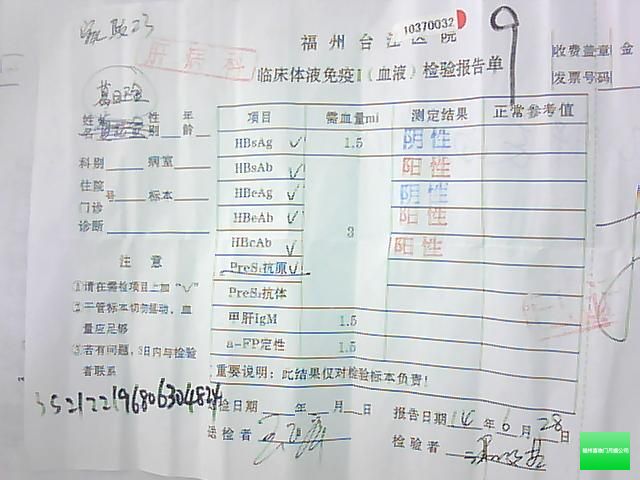 10370032
福州台江医院
收费盖章 金
肝病科
临床体液免疫I(血液)检验报告单
发票号码
9
姓名 性别 年龄
科别 病室
住院号 标本
门诊
诊断
注意
①请在需检项目上加“√”
②干管标本切勿摇动，血
量应足够
③若有问题，3日内与检验
者联系
项目 需血量ml 测定结果 正常参考值
HBsAg √ 1.5 阴性
HBsAb √ 阳性
HBeAg √ 阴性
HBeAb √ 3 阳性
HBcAb √ 阳性
PreS₁抗原 √
PreS₁抗体
甲肝IgM 1.5
a-FP定性 1.5
重要说明：此结果仅对检验标本负责！
检日期 年 月 日 报告日期 14 年 6 月 28 日
送检者 检验者